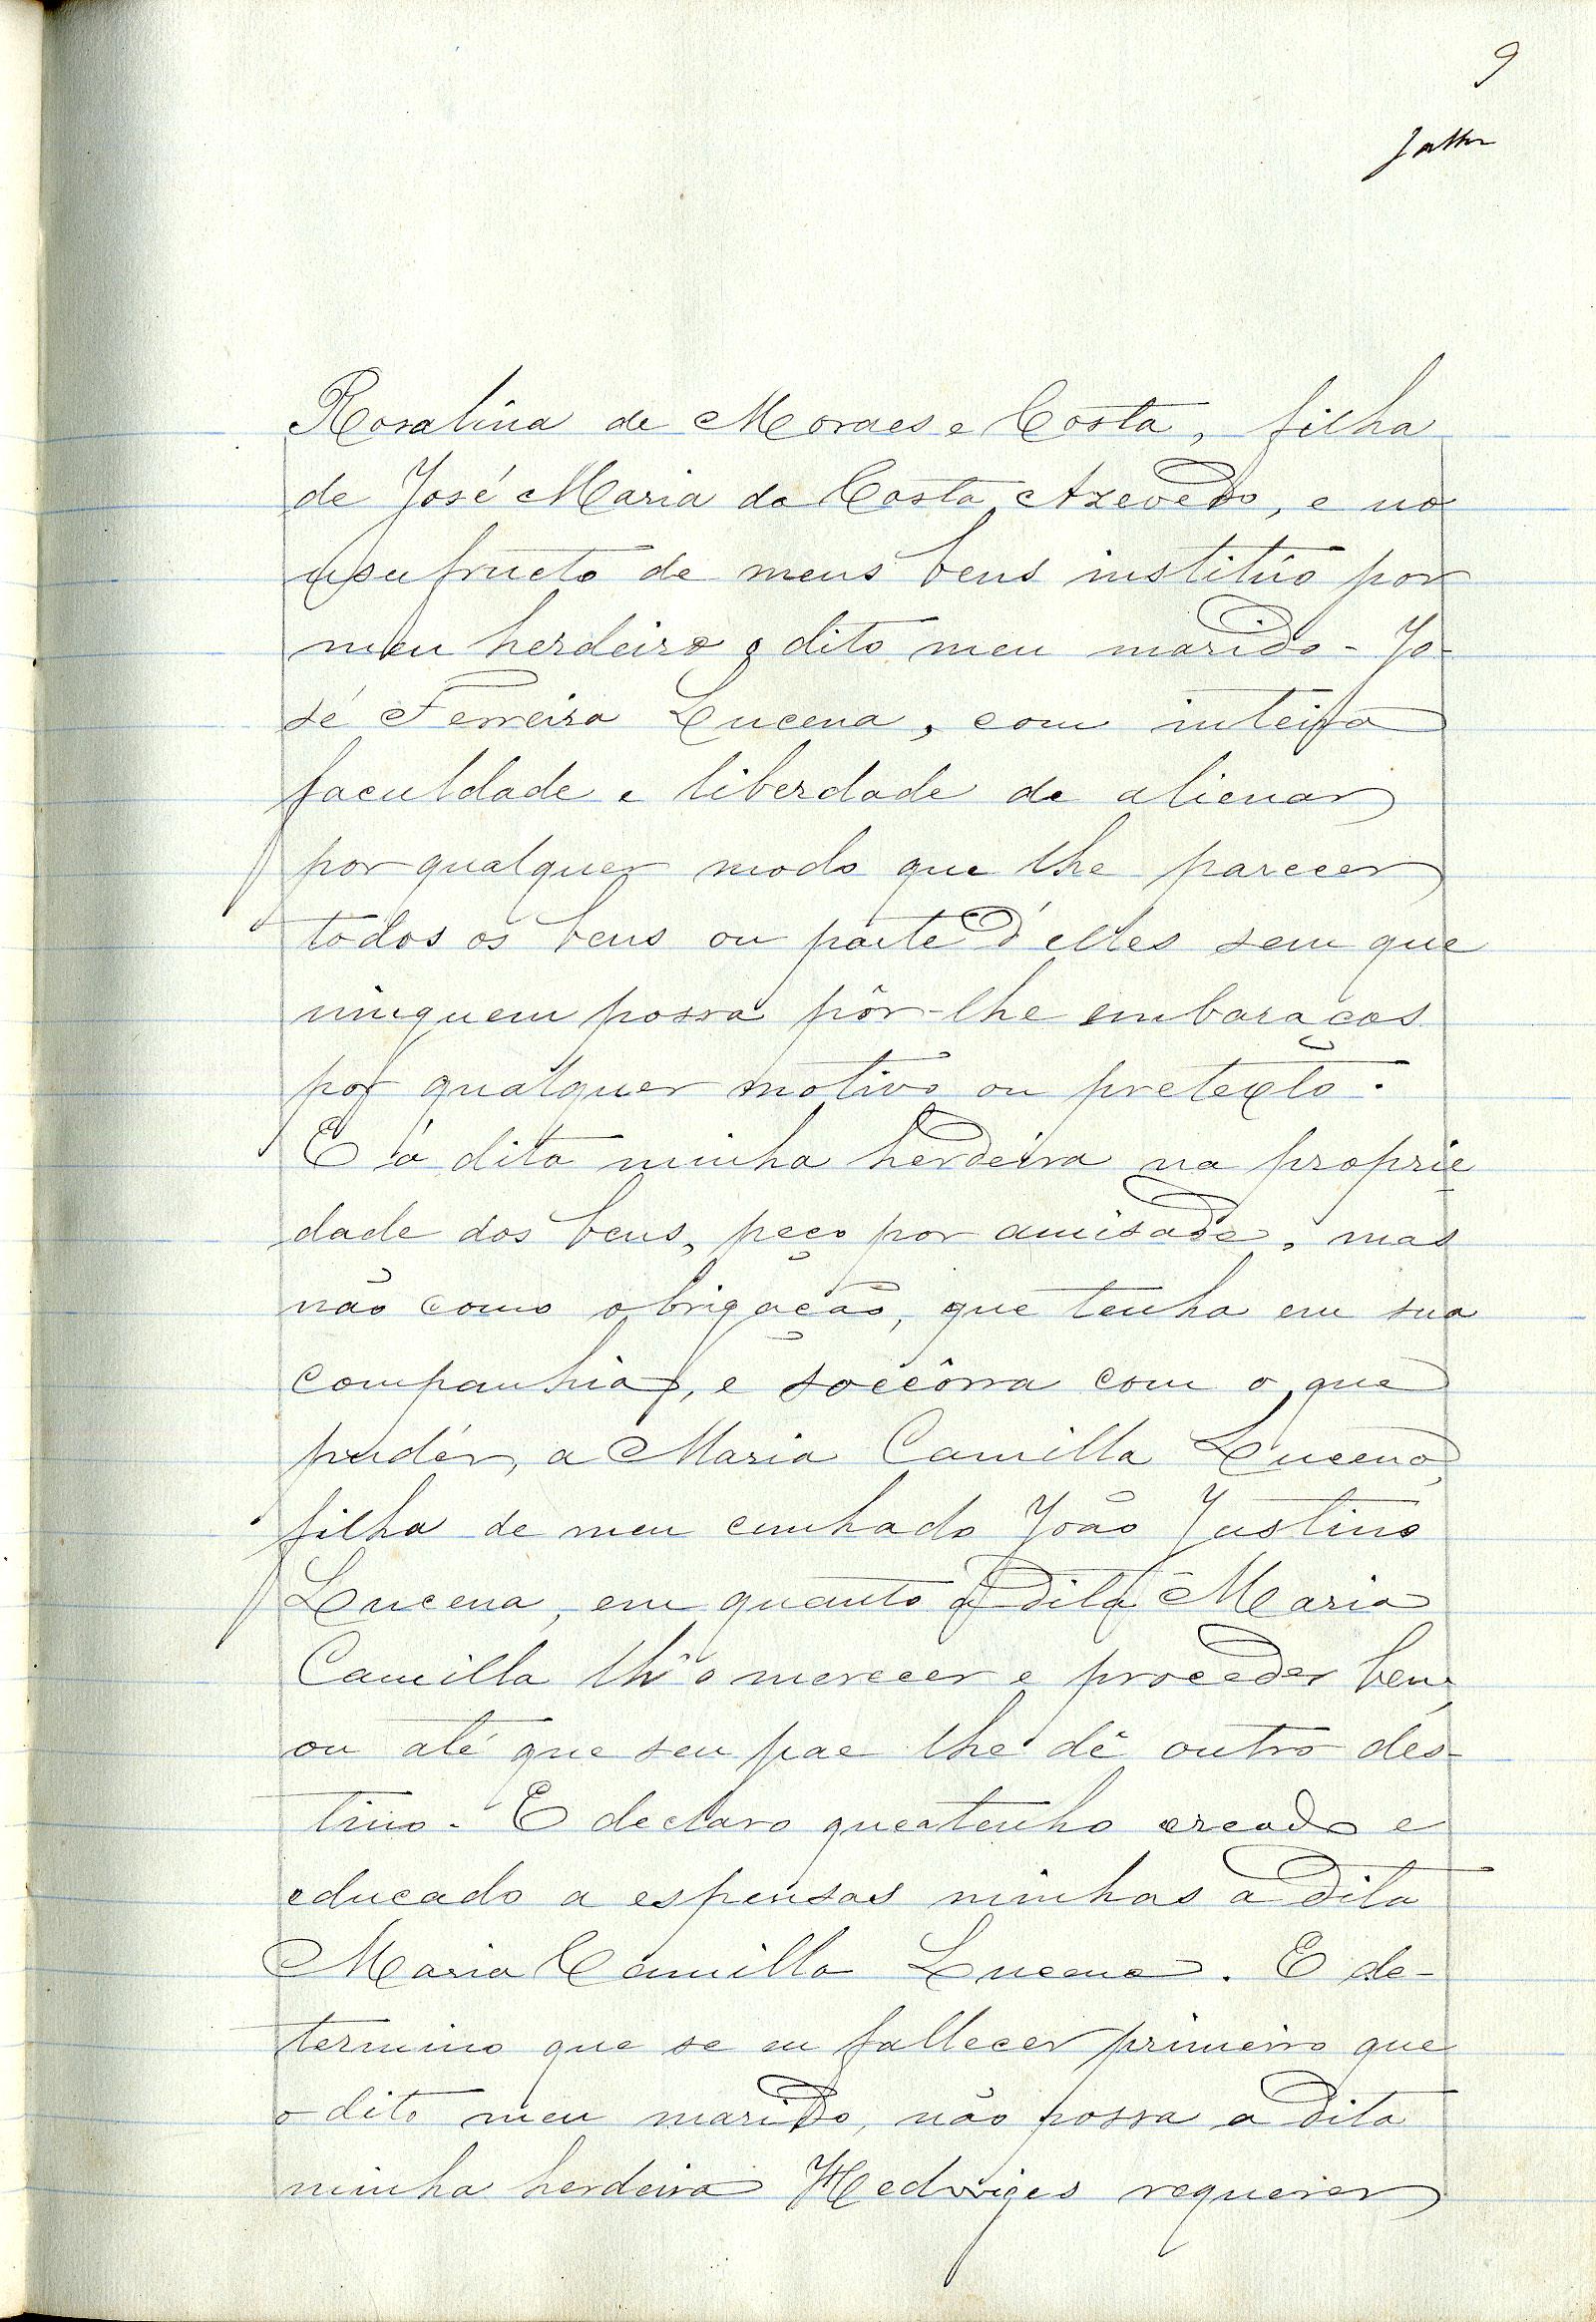 9
Rosalina de Moraes e Costa, filha
de José Maria da Costa Azevedo, e no
usufructo de meus bens institúo por
meu herdeiro o dito meu marido - Jo-
sé Ferreira Lucena, com inteira
faculdade e liberdade de alienar
por qualquer modo que lhe parecer
todos os bens ou parte d'elles sem que
ninguem possa pôr-lhe embaraços
por qualquer motivo ou pretexto.
E á dita minha herdeira na proprie
dade dos bens, peço por amisade, mas
não como obrigação, que tenha em sua
companhia, e soccôrra com o que
pudér, a Maria Camilla Lucena,
filha de meu cunhado João Justino
Lucena, em quanto a dita Maria
Camilla lh'o merecer e proceder bem,
ou até que seu pae lhe dê outro des-
tino. E declaro que a tenho creado e
educado a espensas minhas a dita
Maria Camilla Lucena. E de-
termino que se eu fallecer primeiro que
o dito meu marido, não possa a dita
minha herdeira Hedviges requerer